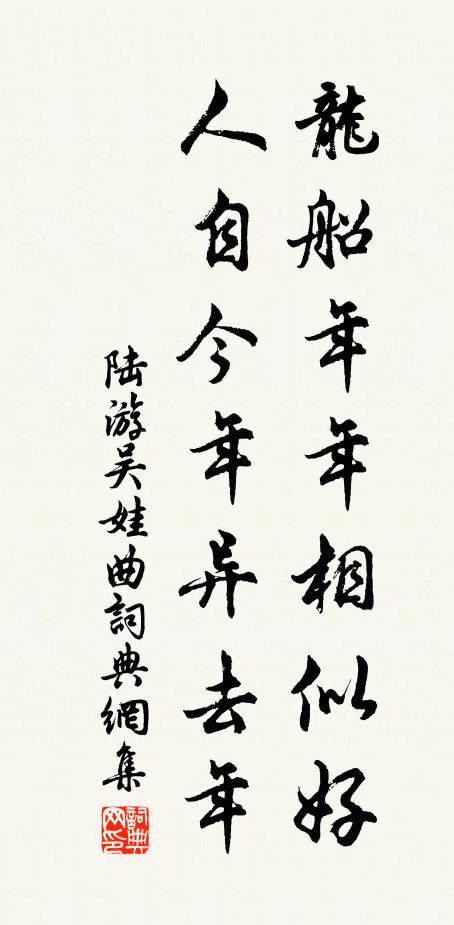 龍船年年相似好
人自今年异去年
陆游吴娃曲詞典網集
詞典网印